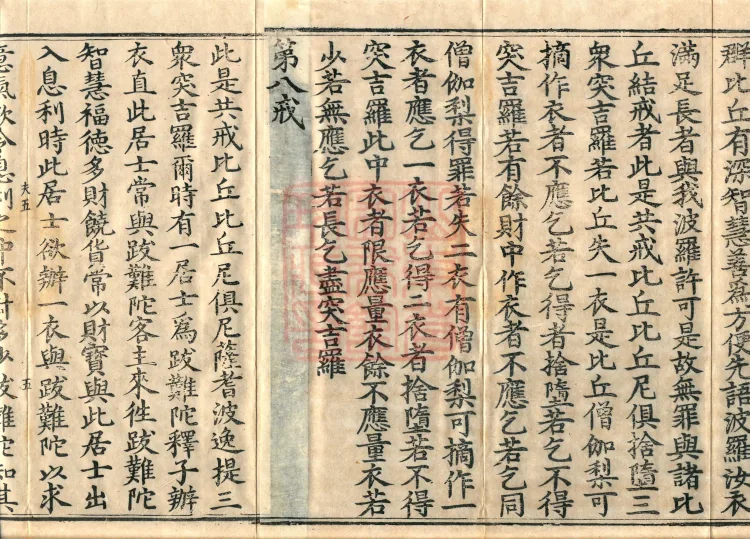 群比丘有深智慧善爲方便先語波羅汝衣
滿足長者與我波羅許可是故無罪與諸比
丘結戒者此是共戒比丘比丘尼俱捨墮三
衆突吉羅若比丘失一衣是比丘僧伽梨可
摘作衣者不應乞若乞得者捨墮若乞不得
突吉羅若有餘財中作衣者不應乞若乞同
僧伽梨得罪若失二衣有僧伽梨可摘作一
衣者應乞一衣若乞得二衣者捨墮若不得
突吉羅此中衣者限應量衣餘不應量衣若
少若無應乞若長乞盡突吉羅
第八戒
此是共戒比丘比丘尼俱尼薩耆波逸提三
衆突吉羅爾時有一居士爲跋難陀釋子辦
衣直此居士常與跋難陀客主來徃跋難陀
智慧福德多財饒貨常以財寶與此居士出
入息利時此居士欲辦一衣與跋難陀以求
夫五 五
意氣
跋難陀知其